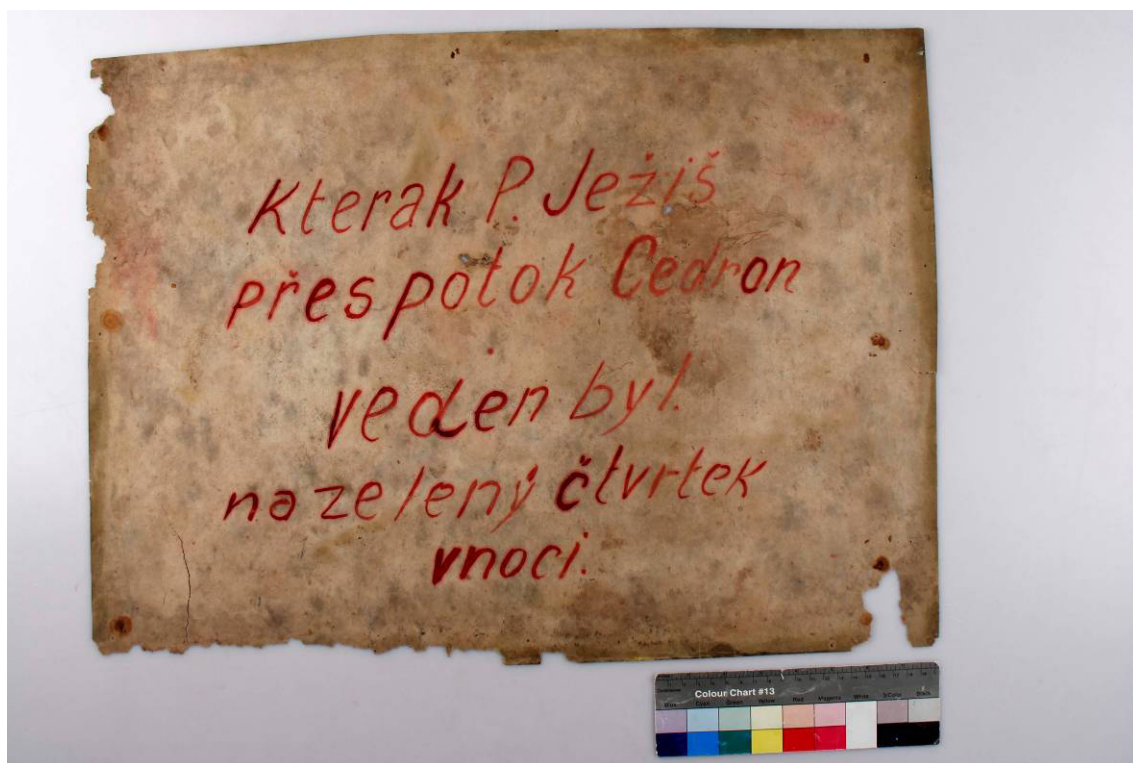 Kterak P. Ježiš
přes potok Cedron
veden byl.
na zelený čtvrtek
vnoci.
Colour Chart #13
Blue Cyan Green Yellow Red Magenta White 3/Color Black